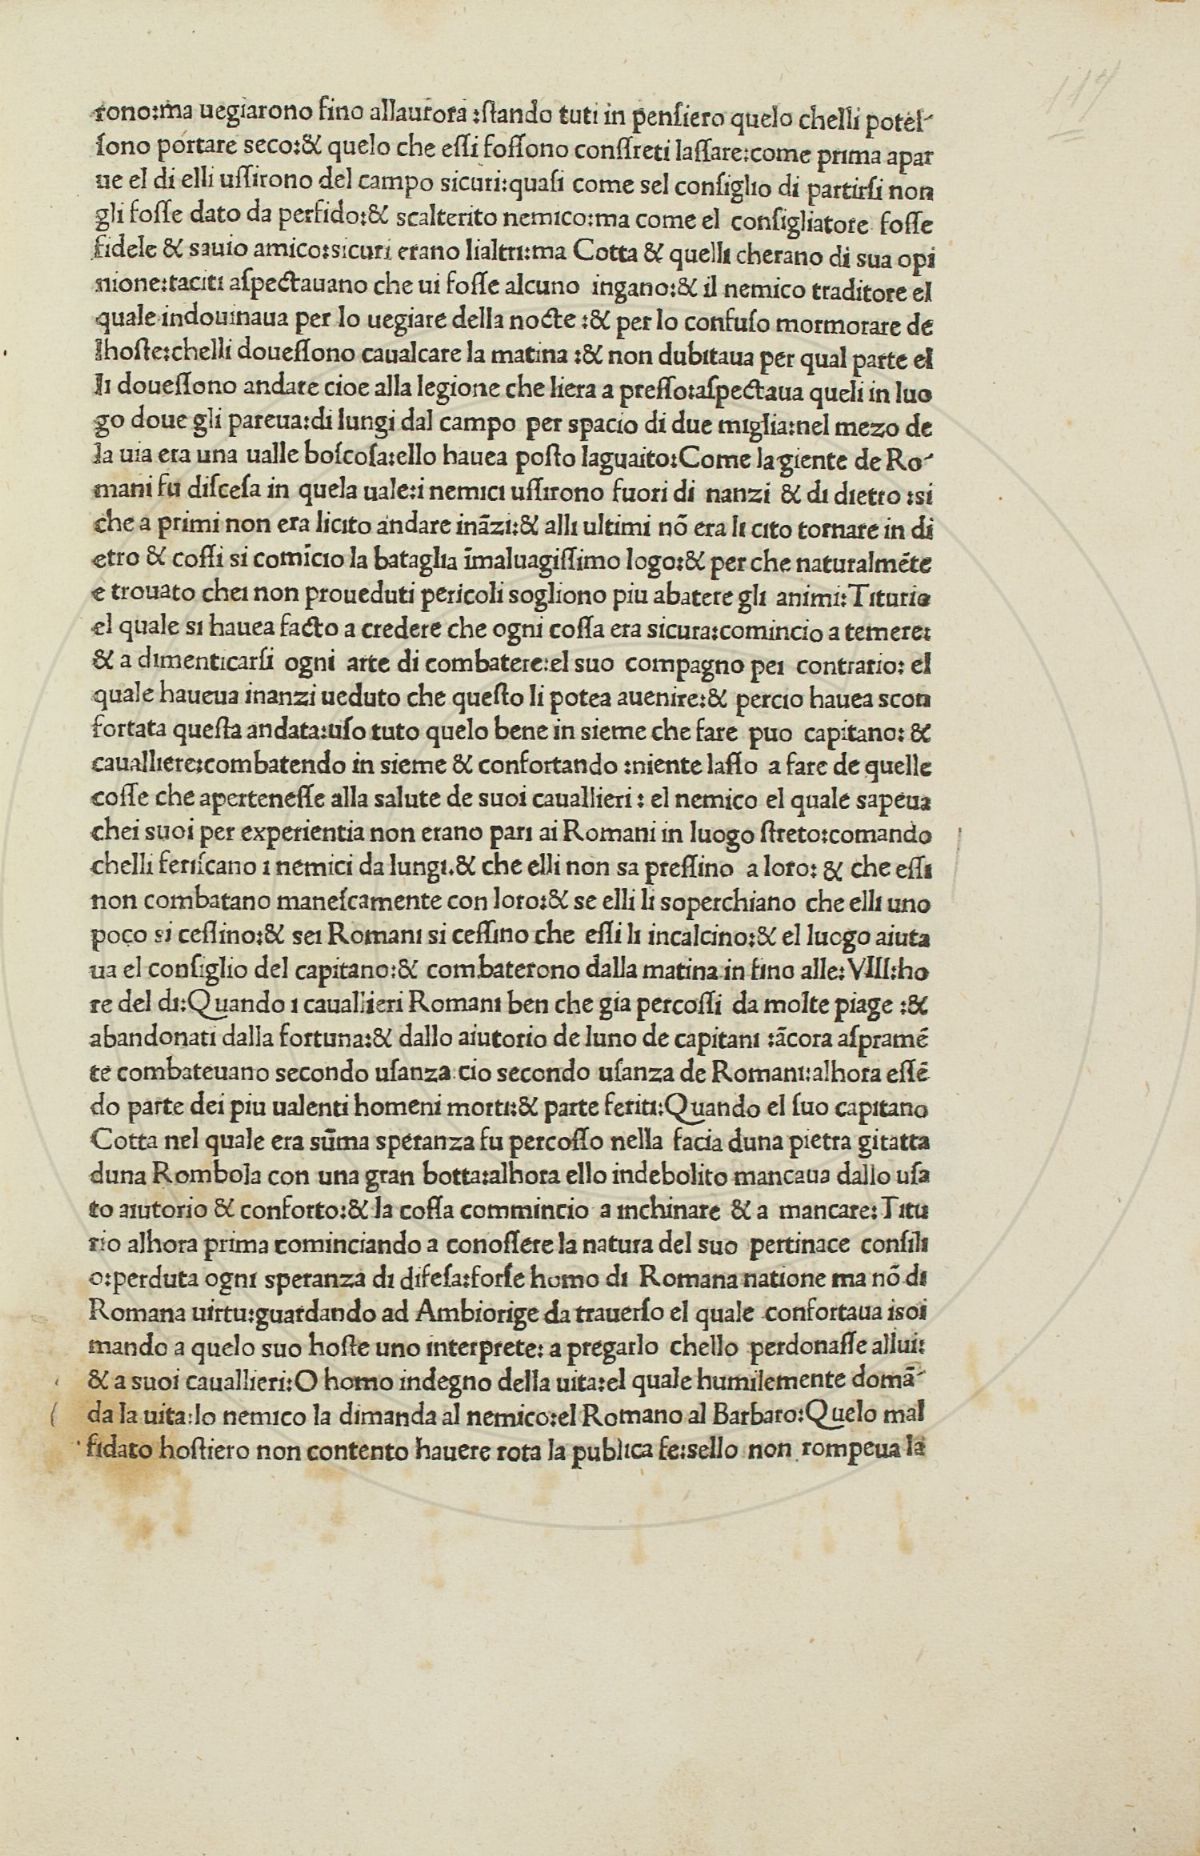 114
rono:ma uegiarono fino allaurora :stando tuti in pensiero quelo chelli potes-
sono portare seco:& quelo che essi fossono conssreti lassare:come prima apar
ue el di elli ussirono del campo sicuri:quasi come sel consiglio di partirsi non
gli fosse dato da perfido:& scalterito nemico:ma come el consigliatore fosse
fidele & sauio amico:sicuri erano lialtri:ma Cotta & quelli cherano di sua opi
nione:taciti aspectauano che ui fosse alcuno ingano:& il nemico traditore el
quale indouinaua per lo uegiare della nocte :& per lo confuso mormorare de
lhoste:chelli douessono caualcare la matina :& non dubitaua per qual parte el
li douessono andare cioe alla legione che liera a presso:aspectaua queli in luo
go doue gli pareua:di lungi dal campo per spacio di due miglia:nel mezo de
la uia era una ualle boscosa:ello hauea posto laguaito:Come la giente de Ro-
mani fu discesa in quela uale:i nemici ussirono fuori di nanzi & di dietro :si
che a primi non era licito andare inãzi:& alli ultimi nõ era li cito tornare in di
etro & cossi si comicio la bataglia ĩmaluagissimo logo:& per che naturalmẽte
e trouato chei non proueduti pericoli sogliono piu abatere gli animi:Titurio
el quale si hauea facto a credere che ogni cossa era sicura:comincio a temere:
& a dimenticarsi ogni arte di combatere:el suo compagno per contrario: el
quale haueua inanzi ueduto che questo li potea auenire:& percio hauea scon
fortata questa andata:uso tuto quelo bene in sieme che fare puo capitano: &
caualliere:combatendo in sieme & confortando :niente lasso a fare de quelle
cosse che apertenesse alla salute de suoi cauallieri : el nemico el quale sapeua
chei suoi per experientia non erano pari ai Romani in luogo streto:comando
chelli feriscano i nemici da lungi.& che elli non sa pressino a loro: & che essi
non combatano manescamente con loro:& se elli li soperchiano che elli uno
poco si cessino:& sei Romani si cessino che essi li incalcino:& el luogo aiuta
ua el consiglio del capitano:& combaterono dalla matina in fino alle: VIII:ho
re del di:Quando i cauallieri Romani ben che gia percossi da molte piage :&
abandonati dalla fortuna:& dallo aiutorio de luno de capitani :ãcora aspramẽ
te combateuano secondo usanza cio secondo usanza de Romani:alhora essẽ
do parte dei piu ualenti homeni morti:& parte feriti:Quando el suo capitano
Cotta nel quale era sũma speranza fu percosso nella facia duna pietra gitatta
duna Rombola con una gran botta:alhora ello indebolito mancaua dallo usa
to aiutorio & conforto:& la cossa commincio a inchinare & a mancare:Titu
rio alhora prima cominciando a conossere la natura del suo pertinace consili
o:perduta ogni speranza di difesa:forse homo di Romana natione ma nõ di
Romana uirtu:guardando ad Ambiorige da trauerso el quale confortaua isoi
mando a quelo suo hoste uno interprete: a pregarlo chello perdonasse allui:
& a suoi cauallieri:O homo indegno della uita:el quale humilemente domã-
da la uita:lo nemico la dimanda al nemico:el Romano al Barbaro:Quelo mal
fidato hostiero non contento hauere rota la publica fe:sello non rompeua la